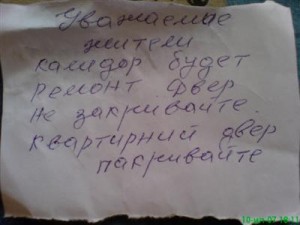 Уважаемые
жители
калидор будет
ремонт двер
не закривайте.
квартирний двер
пакривайте